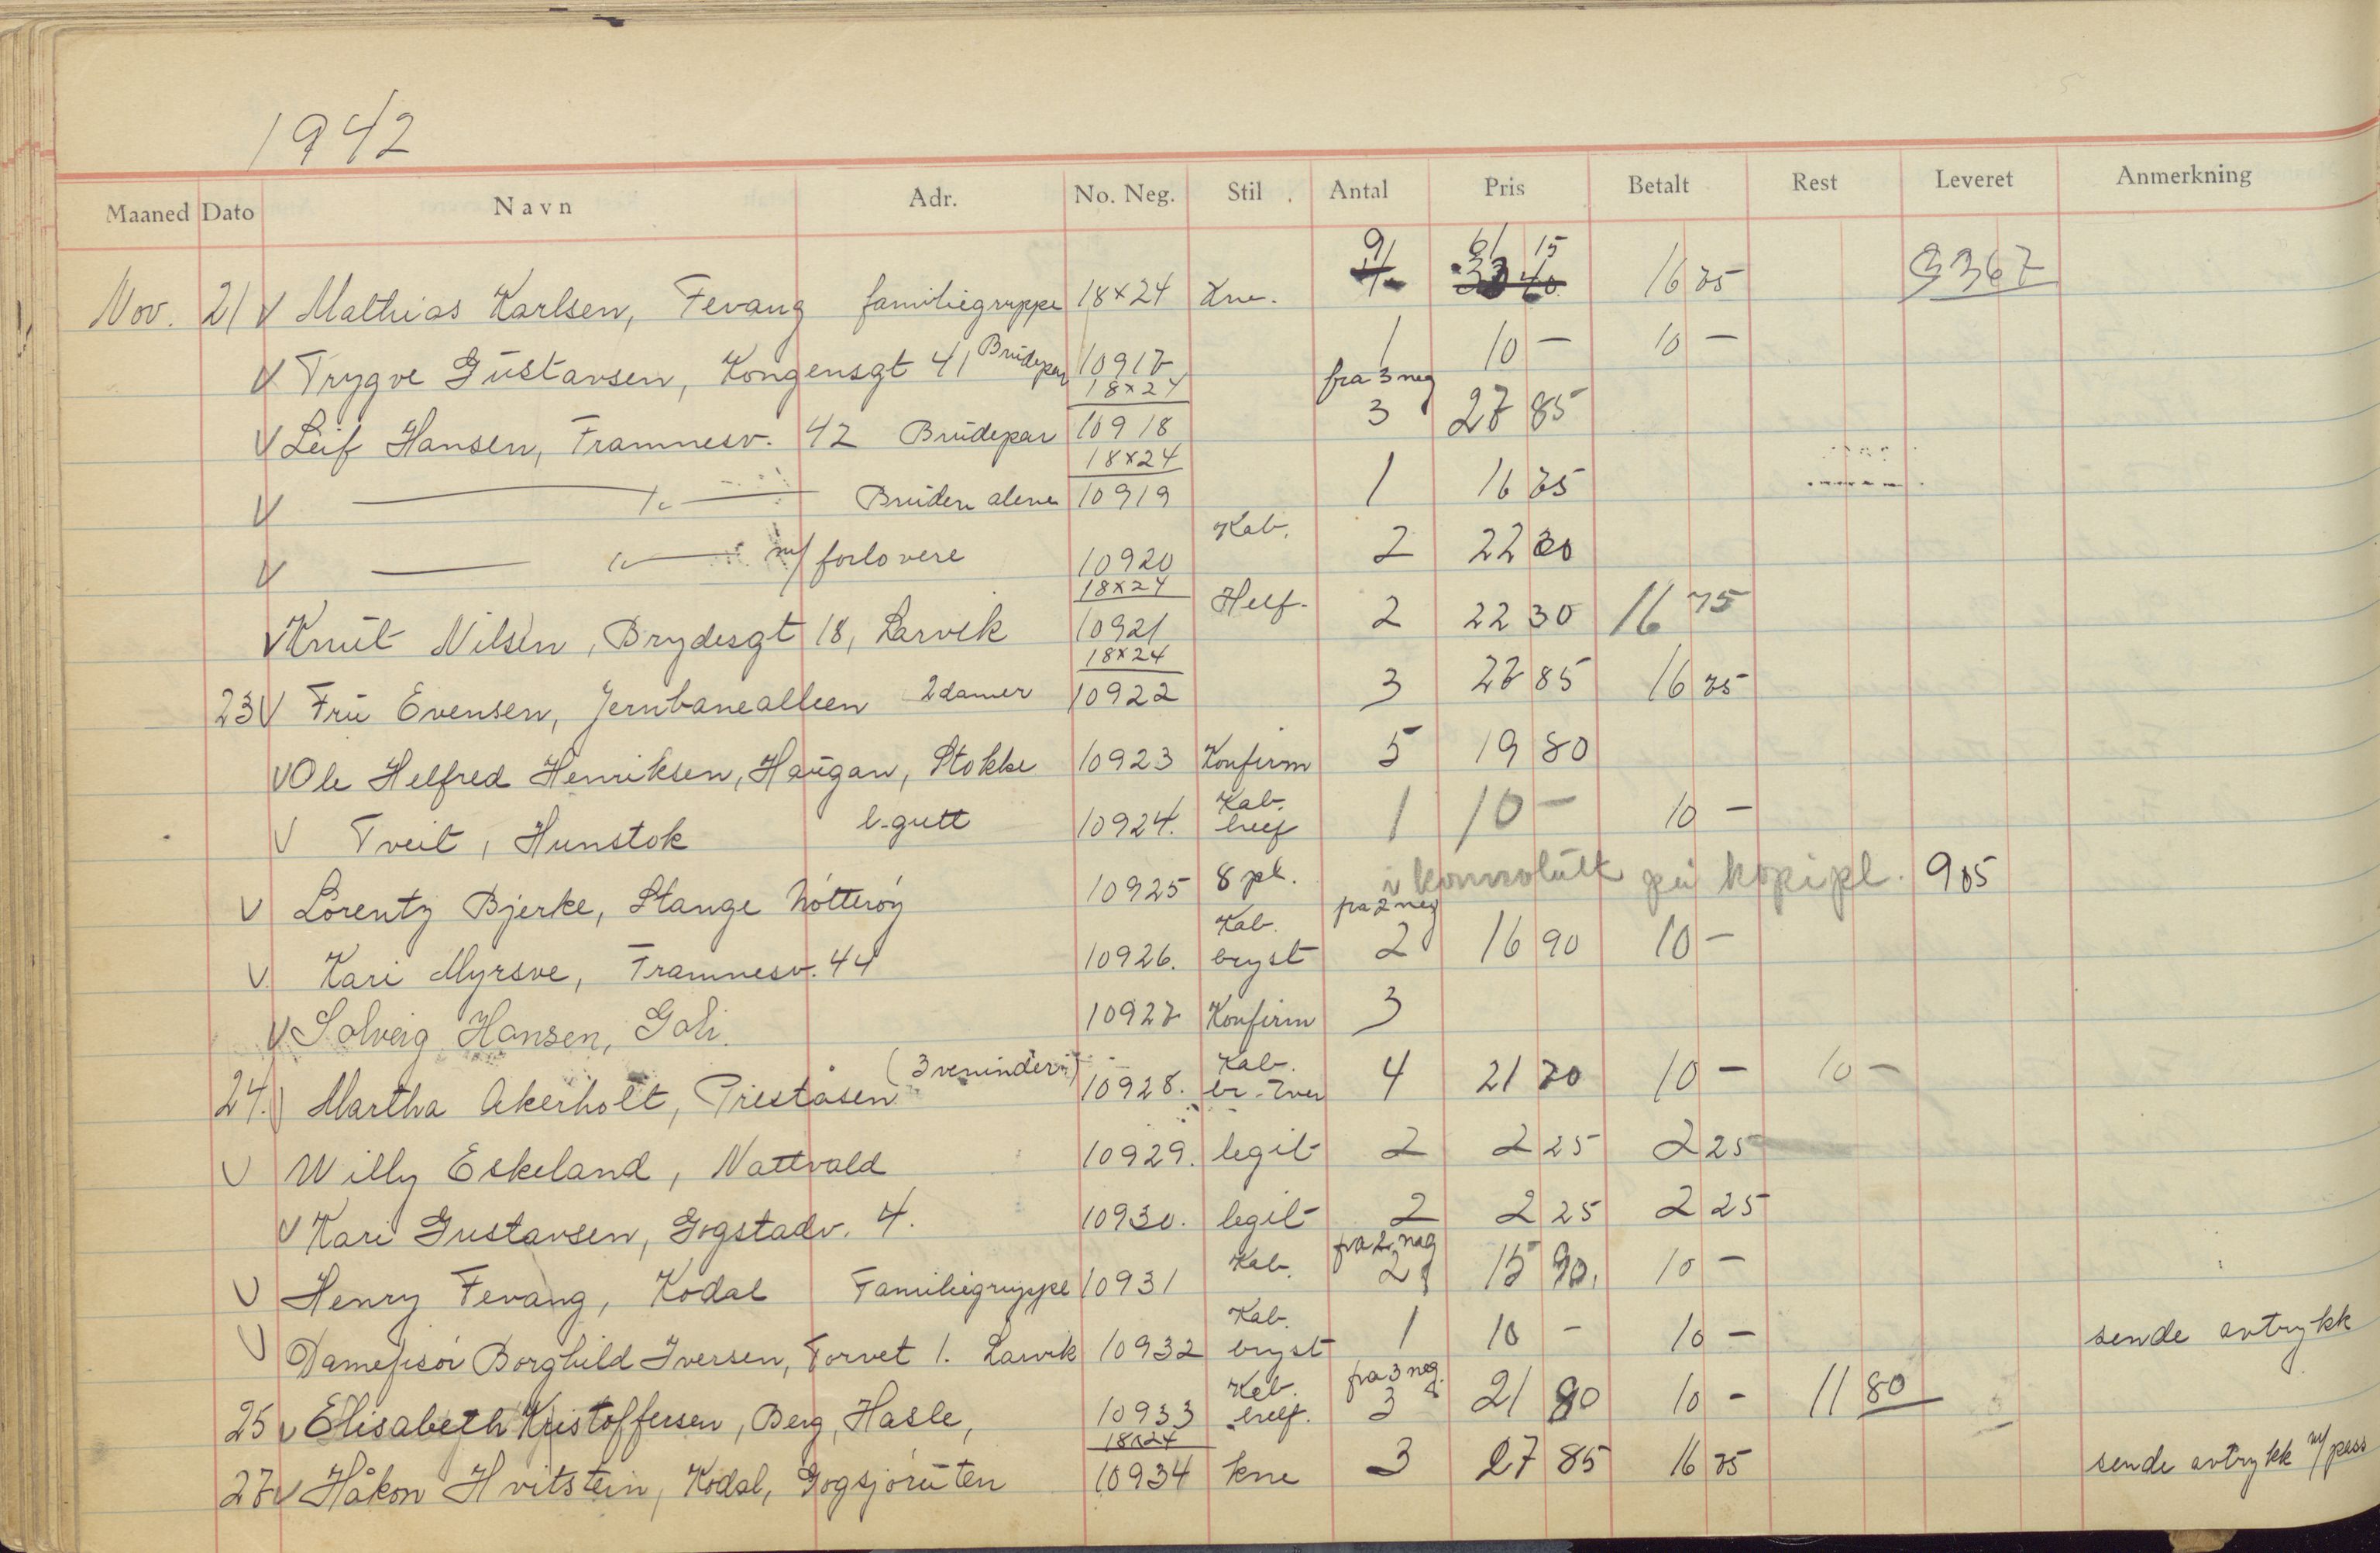 1942
Maaned Dato Navn Adr. No. Neg. Stil Antal Pris Betalt Rest Leveret Anmerkning
9 61 15
Nov. 21 V Mathias Karlsen, Fevang familiegruppe 18x24 Kne. 4 33 40 16 75 3367
V Trygve Gustavsen, Kongensgt 41 Brudepar 10917 1 10 – 10 –
18x24 fra 3 neg
V Leif Hansen, Framnesv. 42 Brudepar 10918 3 27 85
18x24
V — " — Bruden alene 10919 1 16 75
V — " — m/ forlovere 10920 Kab. 2 22 30
18x24
V Knut Nilsen, Brydesgt 18, Larvik 10921 Helf. 2 22 30 16 75
18x24
23 V Fru Evensen, Jernbancalleen 2 damer 10922 3 27 85 16 75
V Ole Helfred Henriksen, Haugan, Stokke 10923 Konfirm 5 19 80
V Tveit, Hunstok l. gutt 10924. Kab. helf 1 10 – 10 –
V Lorentz Bjerke, Stange Nötteröy 10925 8 pl. i konvolutt på kopipl. 905
fra 2 neg
V. Kari Myrsve, Framnesv. 44 10926. Kab. bryst 2 16 90 10 –
V Solveig Hansen, Goli. 10927 Konfirm 3
24. V Martha Akerholt, Preståsen (3 veninder) 10928. Kab. br. tver 4 21 70 10 – 10 –
V Willy Eskeland, Nattvald 10929. legit 2 2 25 2 25
V Kari Gustavsen, Gogstadv. 4. 10930. legit 2 2 25 2 25
fra 2 neg
V Henry Fevang, Kodal Familiegruppe 10931 Kab. 2 15 90. 10 –
V Damefrisör Borghild Iversen, Torvet 1. Larvik 10932 Kab. bryst 1 10 – 10 – sende avtrykk
fra 3 neg.
25 V Elisabeth Kristoffersen, Berg, Hasle, 10933 Kab. helf. 3 21 80 10 – 11 80
18x24
27 V Håkon Hvitstein, Kodal, Gogsjöruten 10934 kne 3 27 85 16 75 sende avtrykk m/ pass